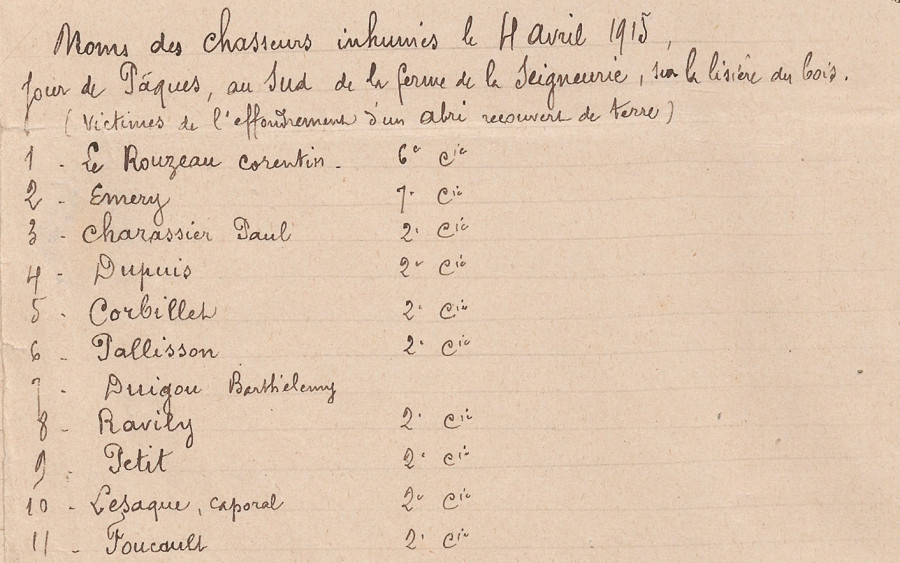 Noms des chasseurs inhumés le 4 avril 1915,
jour de Pâques, au Sud de la ferme de la Seigneurie, sur la lisière du bois.
(Victimes de l'effondrement d'un abri recouvert de terre)
1 - Le Rouzeau corentin. 6e Cie
2 - Emery 7e Cie
3 - Charassier Paul 2e Cie
4 - Dupuis 2e Cie
5 - Corbillet 2e Cie
6 - Pallisson 2e Cie
7 - Duigou Barthélemy
8 - Ravily 2e Cie
9 - Petit 2e Cie
10 - Lesaque, caporal 2e Cie
11 - Foucault 2e Cie